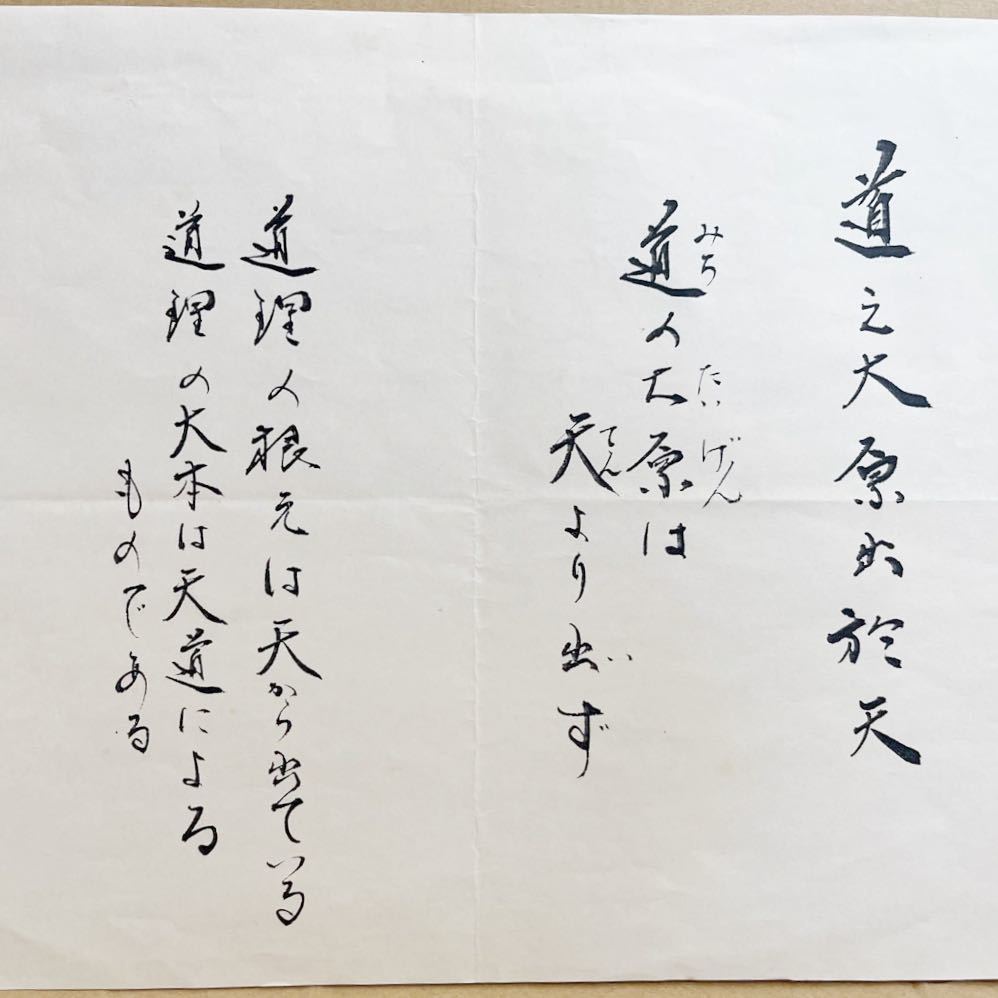 道之大原出於天
道の大原は
みち たいげん
天より出ず
てん い
道理の根元は天から出ている
道理の大本は天道によるものである